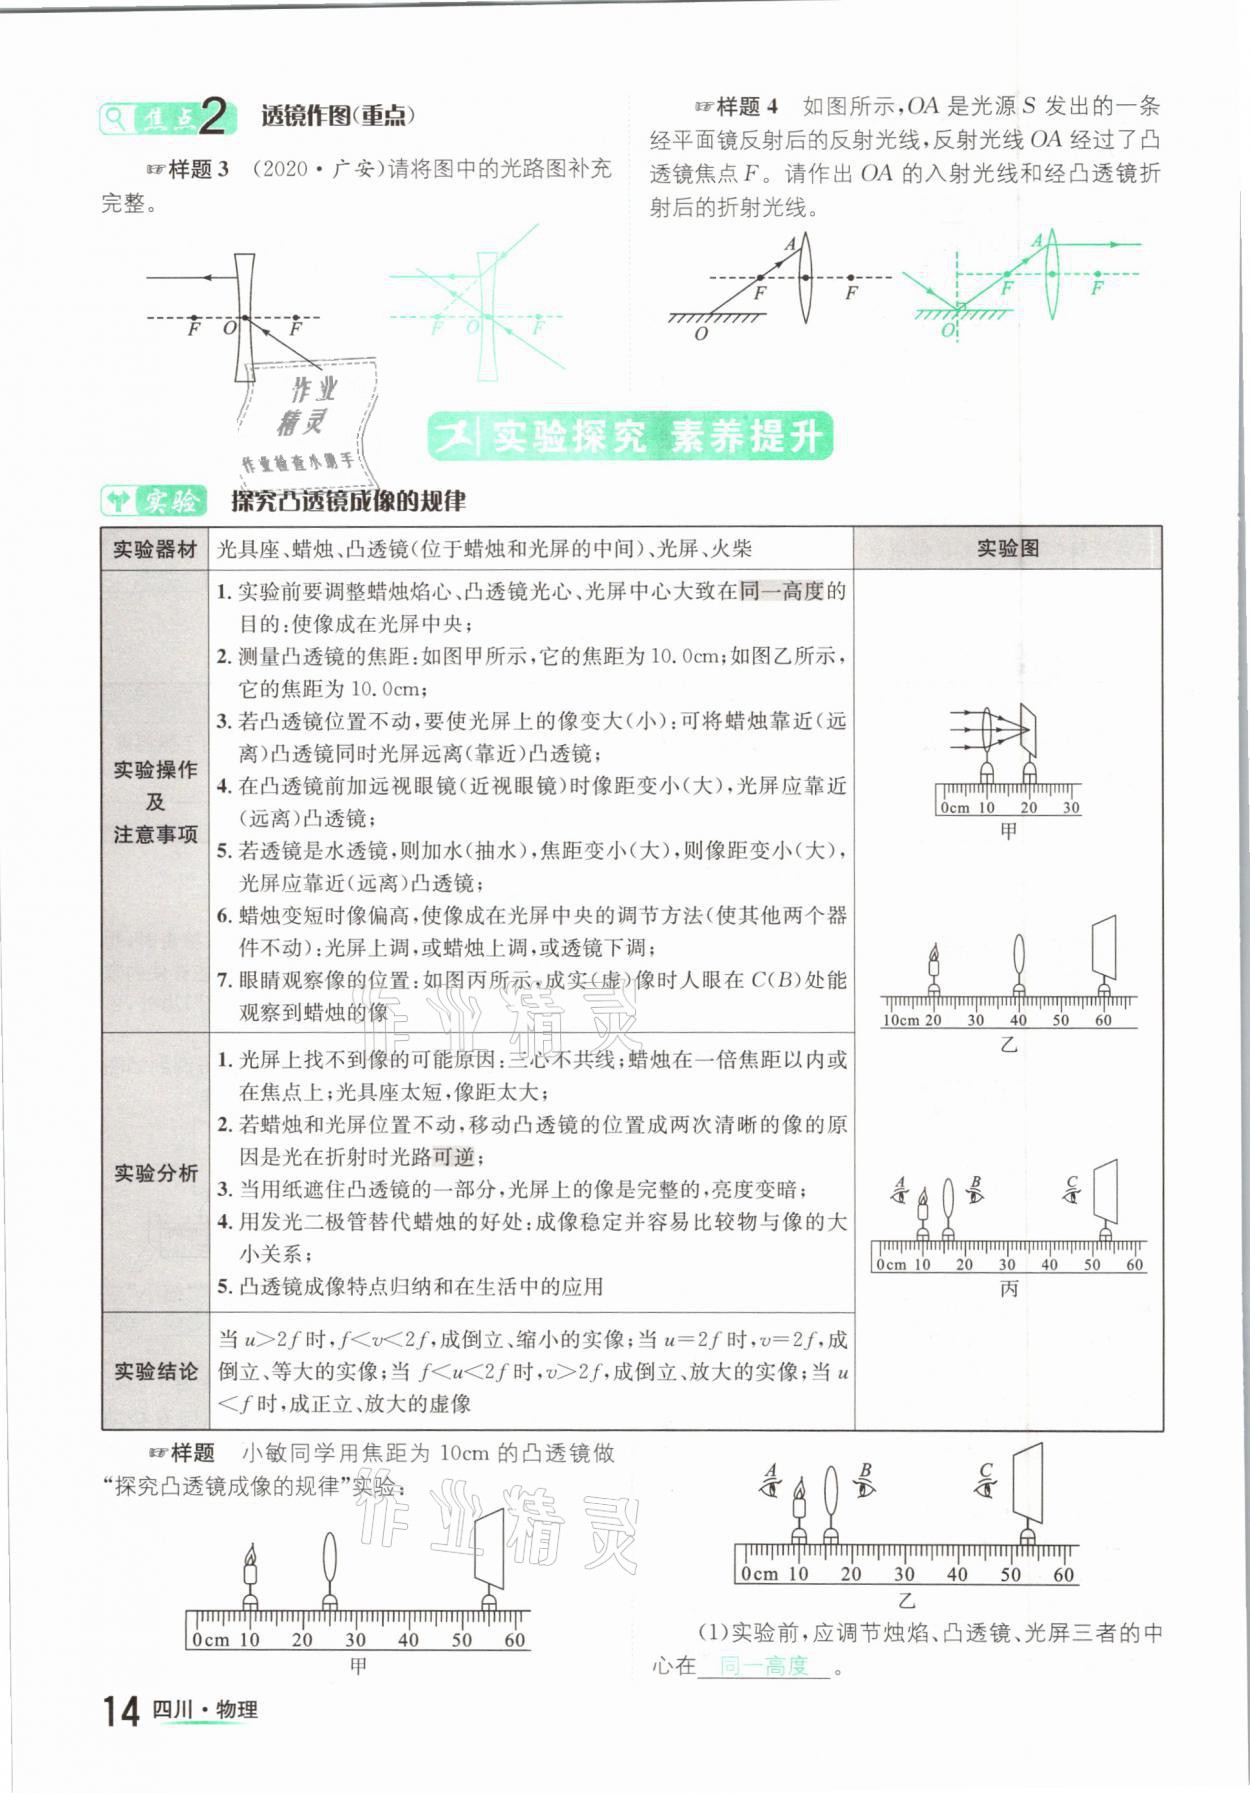 焦点2 透镜作图(重点)
☞样题3 (2020·广安)请将图中的光路图补充
完整。
F O F
F O F
☞样题4 如图所示,OA 是光源 S 发出的一条
经平面镜反射后的反射光线,反射光线 OA 经过了凸
透镜焦点 F。请作出 OA 的入射光线和经凸透镜折
射后的折射光线。
A
F F
O
A
F F
O
作业
精灵
作业检查小助手
实验探究 素养提升
实验 探究凸透镜成像的规律
实验器材
光具座、蜡烛、凸透镜(位于蜡烛和光屏的中间)、光屏、火柴
实验图
实验操作
及
注意事项
1. 实验前要调整蜡烛焰心、凸透镜光心、光屏中心大致在同一高度的
目的:使像成在光屏中央;
2. 测量凸透镜的焦距:如图甲所示,它的焦距为 10.0cm;如图乙所示,
它的焦距为 10.0cm;
3. 若凸透镜位置不动,要使光屏上的像变大(小):可将蜡烛靠近(远
离)凸透镜同时光屏远离(靠近)凸透镜;
4. 在凸透镜前加远视眼镜(近视眼镜)时像距变小(大),光屏应靠近
(远离)凸透镜;
5. 若透镜是水透镜,则加水(抽水),焦距变小(大),则像距变小(大),
光屏应靠近(远离)凸透镜;
6. 蜡烛变短时像偏高,使像成在光屏中央的调节方法(使其他两个器
件不动):光屏上调,或蜡烛上调,或透镜下调;
7. 眼睛观察像的位置:如图丙所示,成实(虚)像时人眼在 C(B)处能
观察到蜡烛的像
0cm 10 20 30
甲
10cm 20 30 40 50 60
乙
A B C
0cm 10 20 30 40 50 60
丙
实验分析
1. 光屏上找不到像的可能原因:三心不共线;蜡烛在一倍焦距以内或
在焦点上;光具座太短,像距太大;
2. 若蜡烛和光屏位置不动,移动凸透镜的位置成两次清晰的像的原
因是光在折射时光路可逆;
3. 当用纸遮住凸透镜的一部分,光屏上的像是完整的,亮度变暗;
4. 用发光二极管替代蜡烛的好处:成像稳定并容易比较物与像的大
小关系;
5. 凸透镜成像特点归纳和在生活中的应用
实验结论
当 u>2f 时,f<v<2f,成倒立、缩小的实像;当 u=2f 时,v=2f,成
倒立、等大的实像;当 f<u<2f 时,v>2f,成倒立、放大的实像;当 u
<f 时,成正立、放大的虚像
作业精灵
☞样题 小敏同学用焦距为 10cm 的凸透镜做
“探究凸透镜成像的规律”实验:
作业精灵
0cm 10 20 30 40 50 60
甲
A B C
0cm 10 20 30 40 50 60
乙
(1)实验前,应调节烛焰、凸透镜、光屏三者的中
心在 同一高度 。
14 四川·物理